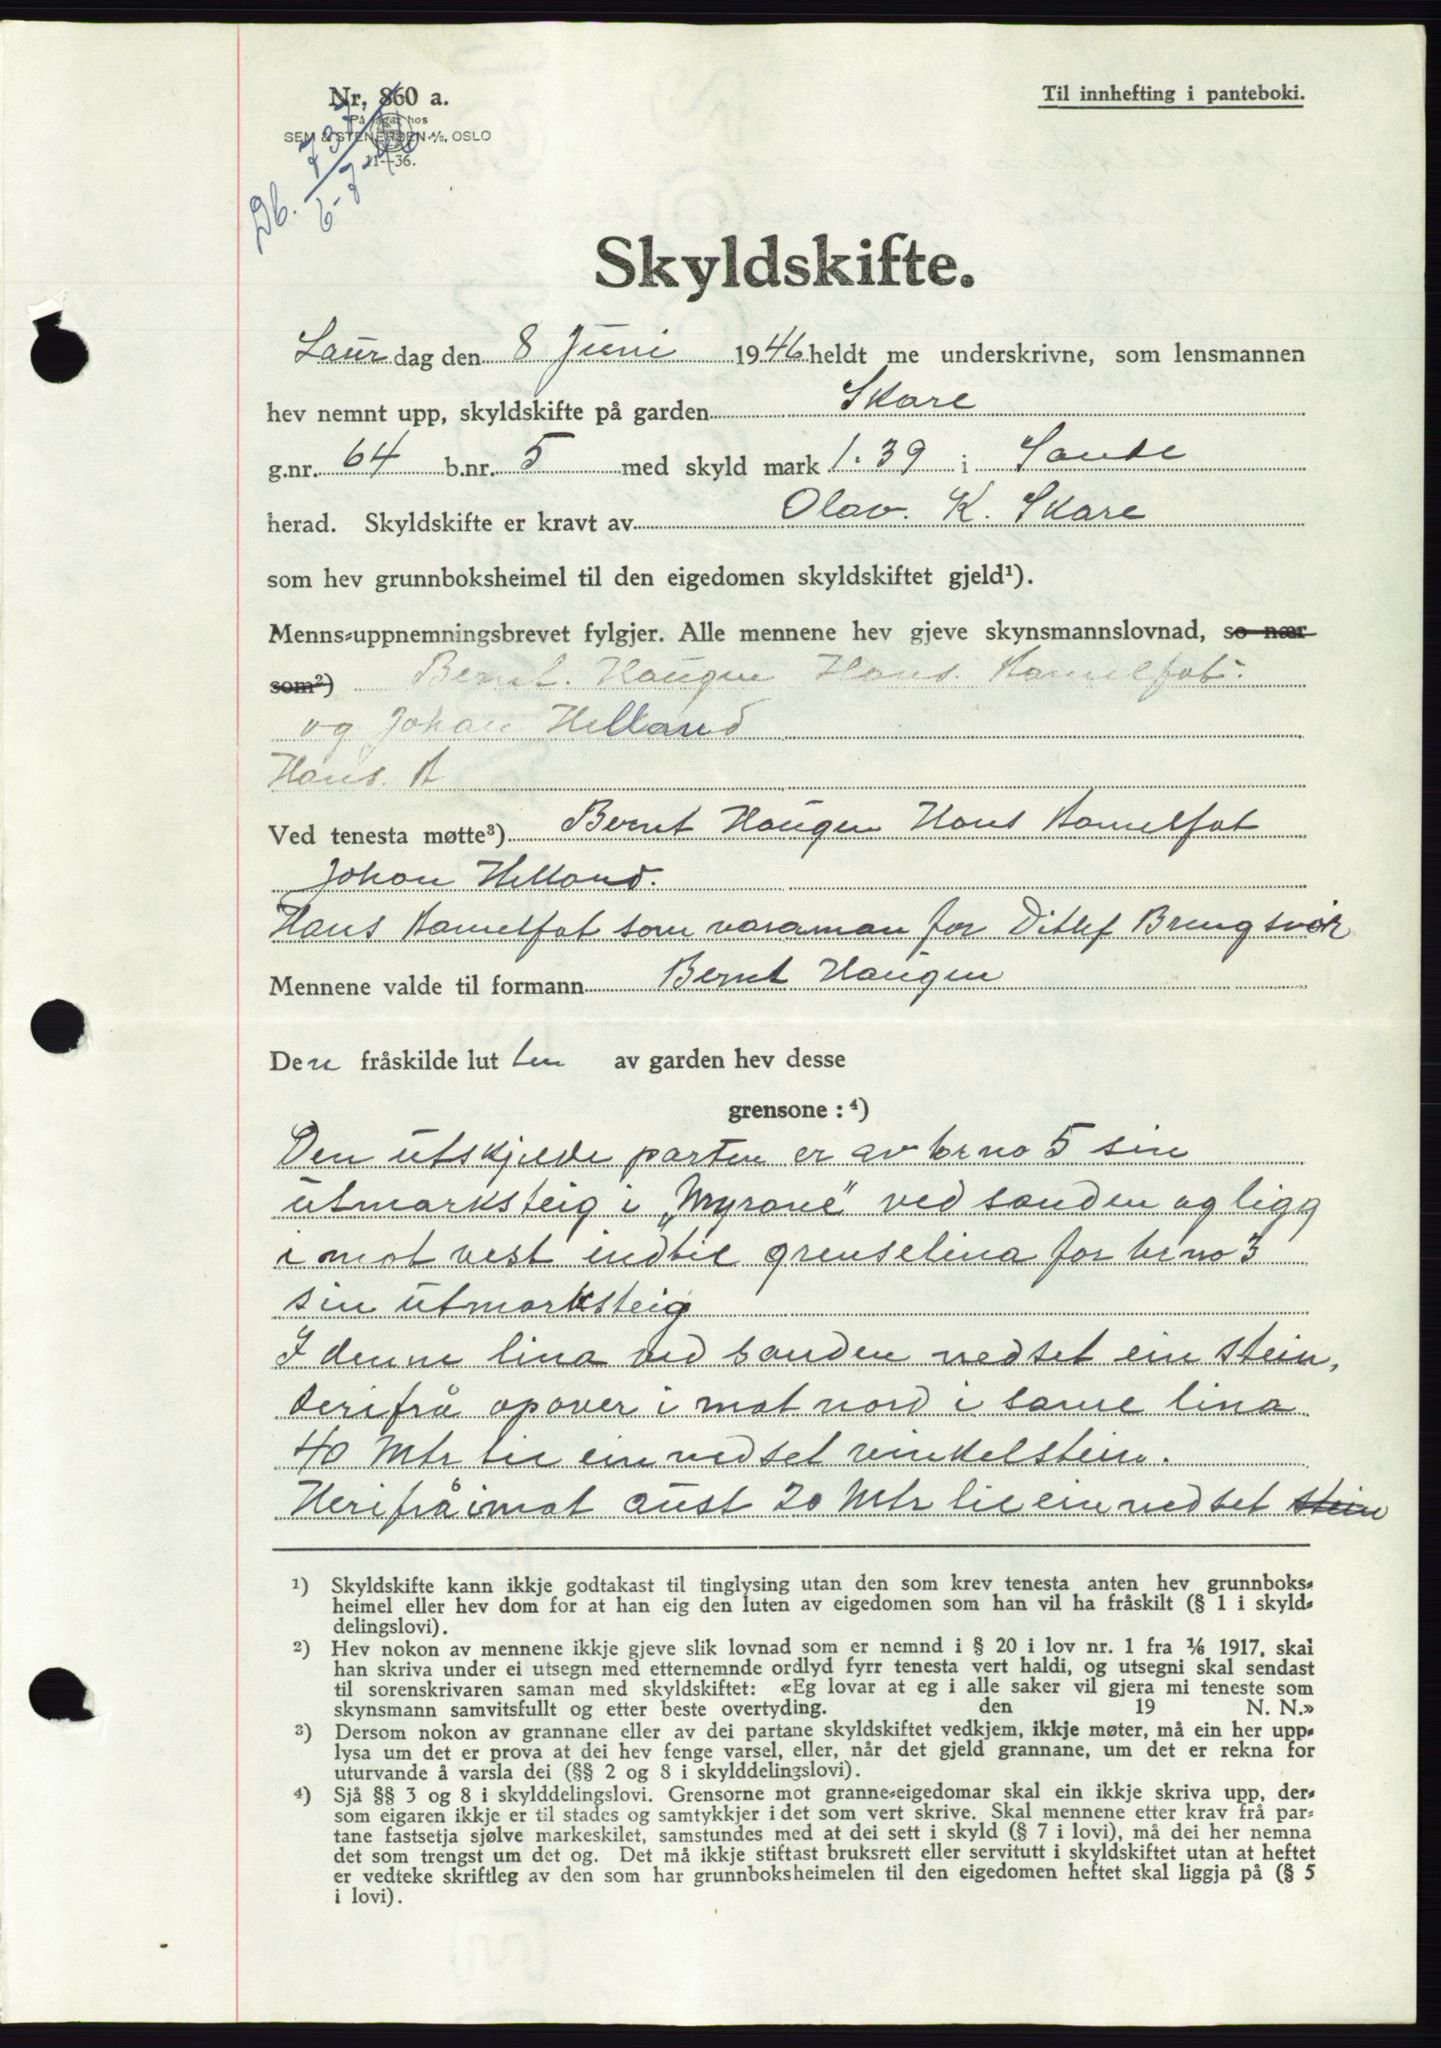 Nr. 860 a.
På lager hos
SEM & STENERSEN A/S, OSLO
11—36.
Db. 737/6-7-46
Til innhefting i panteboki.
Skyldskifte.
Laur dag den 8 Juni 1946 heldt me underskrivne, som lensmannen
hev nemnt upp, skyldskifte på garden Skare
g.nr. 64 b.nr. 5 med skyld mark 1.39 i Sande
herad. Skyldskifte er kravt av Olav. K. Skare
som hev grunnboksheimel til den eigedomen skyldskiftet gjeld¹).
Menns-uppnemningsbrevet fylgjer. Alle mennene hev gjeve skynsmannslovnad, so nær
som²) Bernt. Haugen Hans. Hamelfot.
og Johan Helland
Hans. A
Ved tenesta møtte³) Bernt Haugen Hans Hamelfot
Johan Helland.
Hans Hamelfot som varaman for Ditlef Bringsvor
Mennene valde til formann Bernt Haugen
Den fråskilde luten av garden hev desse
grensone: ⁴)
Den utskjilde parten er av br no 5 sin
utmarksteig i „Myrane" ved sanden og ligg
i mot vest indtil grenselina for br no 3
sin utmarksteig
I denne lina ved sanden nedset ein stein,
derifrå opover i mot nord i same lina
40 Mtr til ein nedset vinkelstein.
Herifrå imot aust 20 Mtr til ein nedset stein
¹) Skyldskifte kann ikkje godtakast til tinglysing utan den som krev tenesta anten hev grunnboks-
heimel eller hev dom for at han eig den luten av eigedomen som han vil ha fråskilt (§ 1 i skyld-
delingslovi).
²) Hev nokon av mennene ikkje gjeve slik lovnad som er nemnd i § 20 i lov nr. 1 fra ⅙ 1917, skal
han skriva under ei utsegn med etternemnde ordlyd fyrr tenesta vert haldi, og utsegni skal sendast
til sorenskrivaren saman med skyldskiftet: «Eg lovar at eg i alle saker vil gjera mi teneste som
skynsmann samvitsfullt og etter beste overtyding. den 19 N. N.»
³) Dersom nokon av grannane eller av dei partane skyldskiftet vedkjem, ikkje møter, må ein her upp-
lysa um det er prova at dei hev fenge varsel, eller, når det gjeld grannane, um det er rekna for
uturvande å varsla dei (§§ 2 og 8 i skylddelingslovi).
⁴) Sjå §§ 3 og 8 i skylddelingslovi. Grensorne mot granne-eigedomar skal ein ikkje skriva upp, der-
som eigaren ikkje er til stades og samtykkjer i det som vert skrive. Skal mennene etter krav frå par-
tane fastsetja sjølve markeskilet, samstundes med at dei sett i skyld (§ 7 i lovi), må dei her nemna
det som trengst um det og. Det må ikkje stiftast bruksrett eller servitutt i skyldskiftet utan at heftet
er vedteke skriftleg av den som har grunnboksheimelen til den eigedomen heftet skal liggja på (§ 5
i lovi).